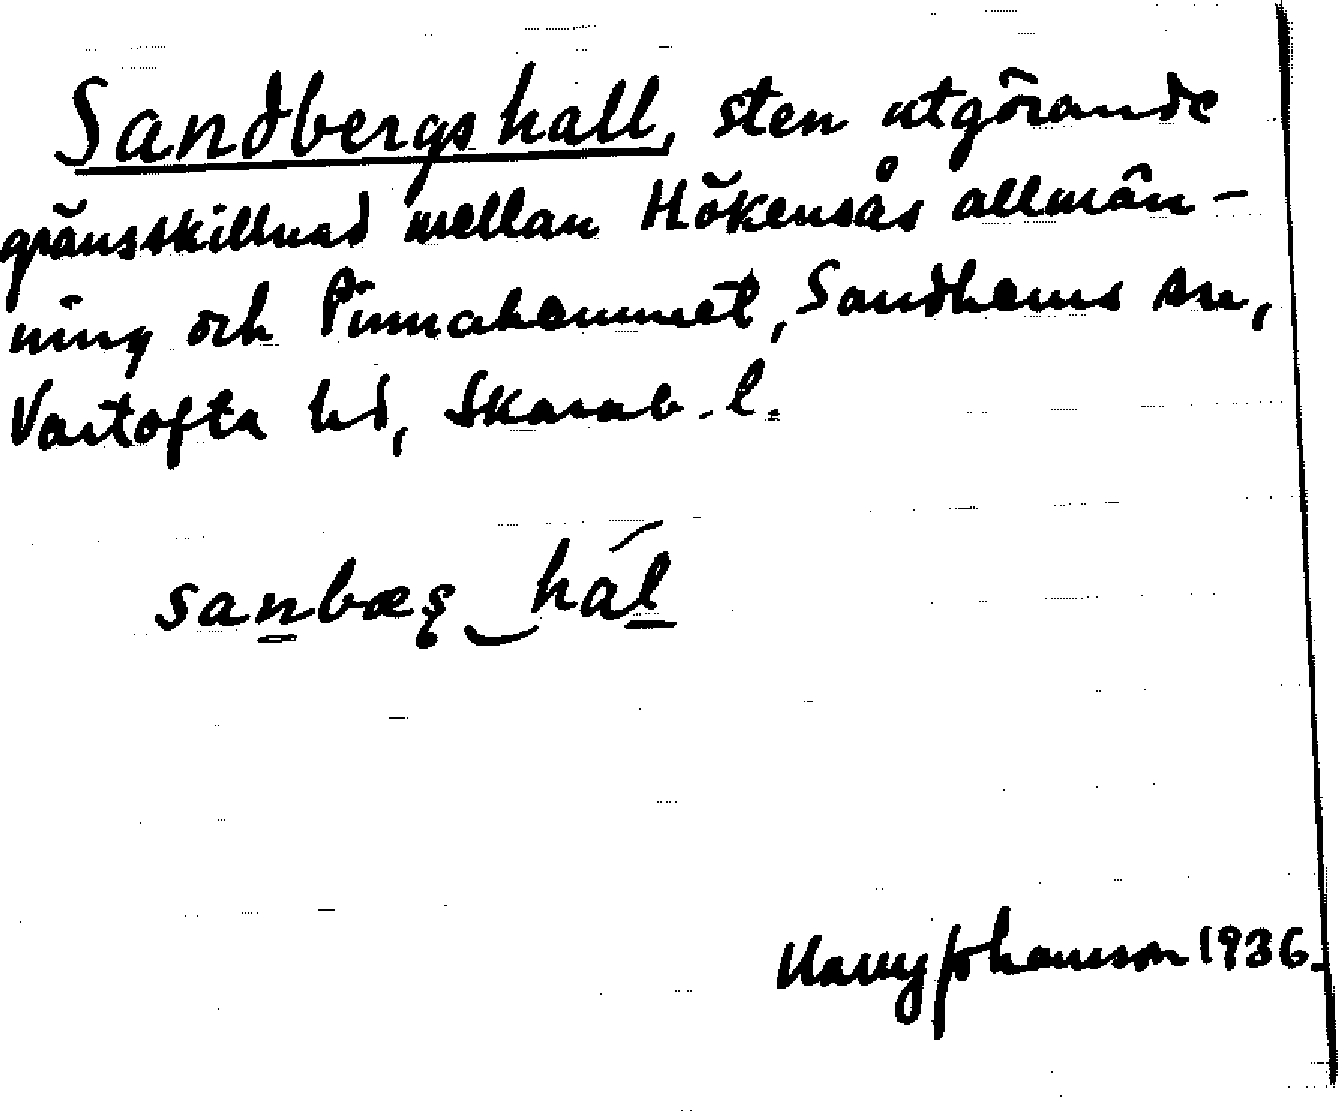 Sandbergs hall, sten utgörande
gränsskillnad mellan Hökensås allmän-
ning och Pinnahemmet, Sandhems sn,
Vartofta hd, Skarab. l.
sanbæş hál
Harry Johansson 1936.